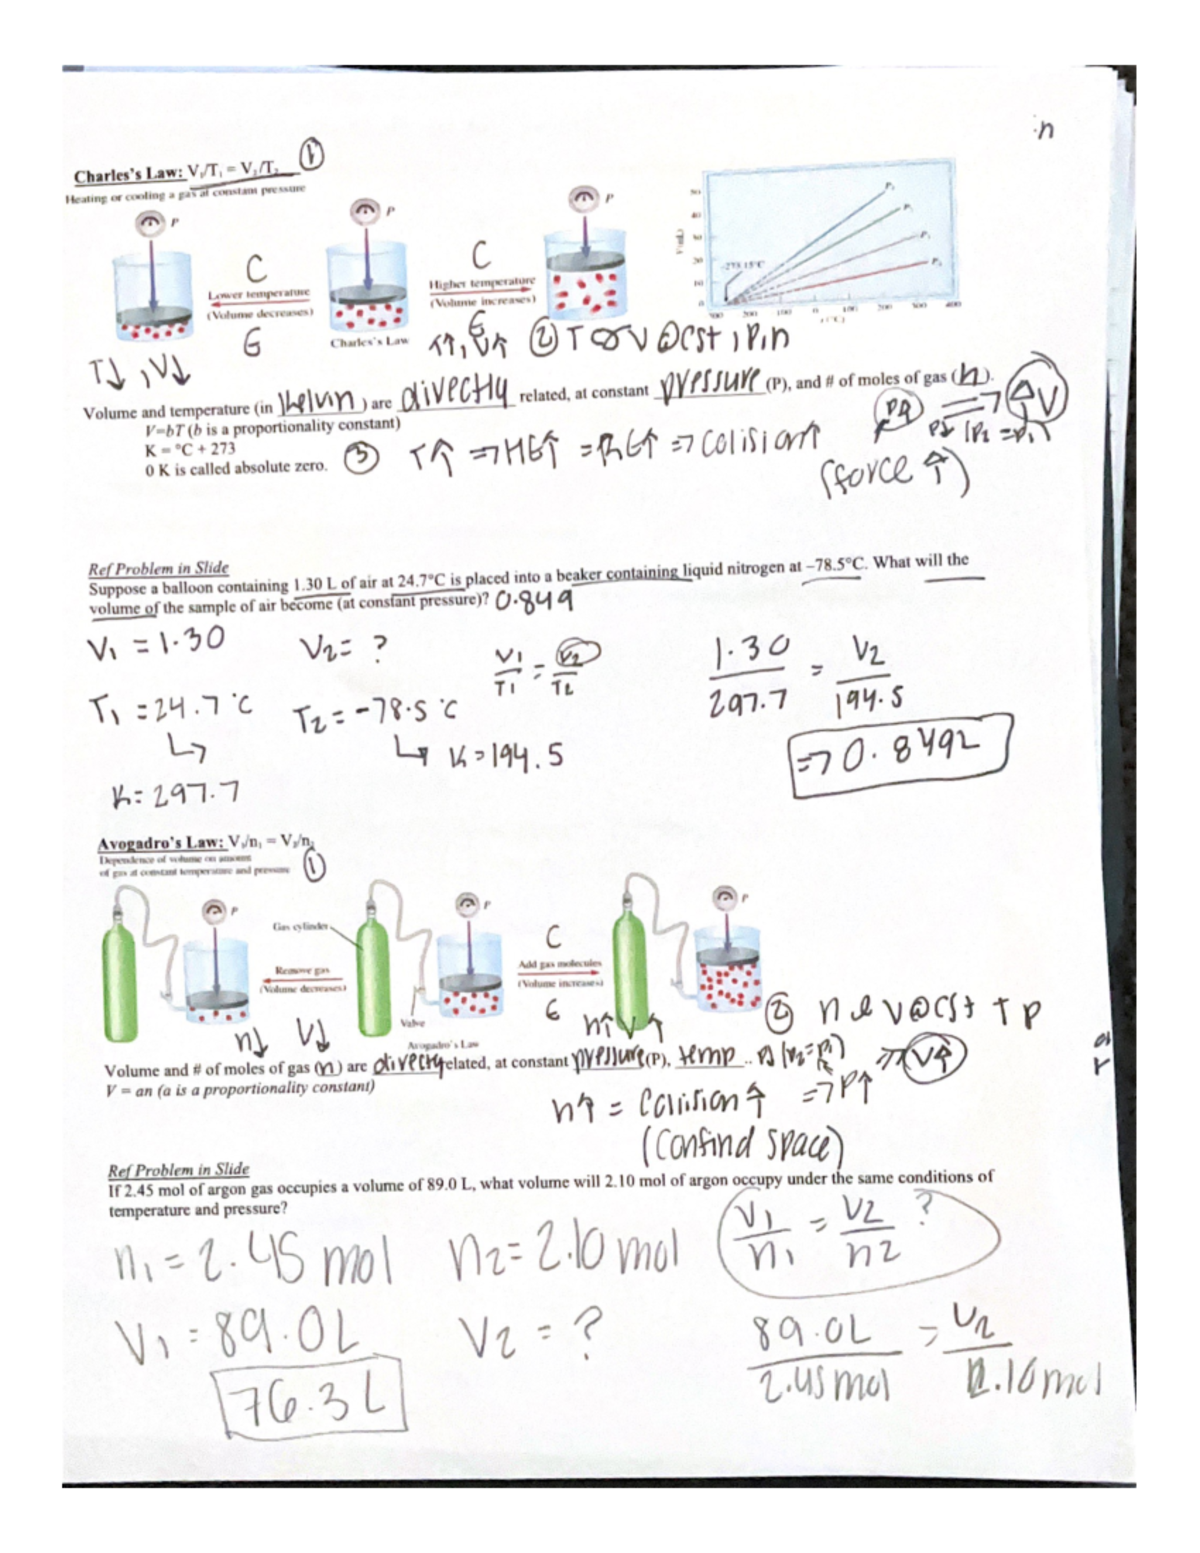 n
Charles's Law: V₁/T₁ = V₂/T₂ ①
Heating or cooling a gas at constant pressure
P
P
P
C
Lower temperature
(Volume decreases)
G
C
Higher temperature
(Volume increases)
E
Charles's Law
V(mL)
50
40
30
20
10
0
-273.15°C
100
200
300
400
T↓, V↓
T↑, V↑ ② T ∝ V @cst, P,n
Volume and temperature (in kelvin) are directly related, at constant pressure (P), and # of moles of gas (n).
V=bT (b is a proportionality constant)
K = °C + 273
0 K is called absolute zero.
③ T↑ => HE↑ = KE↑ => Colision↑
(force ↑)
P↑ => ΔV
P↓ (P₂ = P₁)
Ref Problem in Slide
Suppose a balloon containing 1.30 L of air at 24.7°C is placed into a beaker containing liquid nitrogen at –78.5°C. What will the
volume of the sample of air become (at constant pressure)? 0.849
V₁ = 1.30 V₂ = ? V₁/T₁ = V₂/T₂ 1.30/297.7 = V₂/194.5
T₁ = 24.7 °C T₂ = -78.5 °C
↳ ↳ K = 194.5 => 0.849L
K = 297.7
Avogadro's Law: V₁/n₁ = V₂/n₂
Dependence of volume on amount ①
of gas at constant temperature and pressure
P
P
P
Gas cylinder
Remove gas
(Volume decreases)
C
Add gas molecules
(Volume increases)
E
Valve
Avogadro's Law
n↓ V↓
n↑ V↑
② n & V @cst T P
Volume and # of moles of gas (n) are directly related, at constant pressure (P), temp .. (V₂=P₁) => V↑
V = an (a is a proportionality constant)
n↑ = Collision ↑ => P↑
(Confind space)
Ref Problem in Slide
If 2.45 mol of argon gas occupies a volume of 89.0 L, what volume will 2.10 mol of argon occupy under the same conditions of
temperature and pressure?
n₁ = 2.45 mol n₂ = 2.10 mol V₁/n₁ = V₂/n₂ ?
V₁ = 89.0L V₂ = ? 89.0L/2.45 mol = V₂/2.10 mol
76.3 L